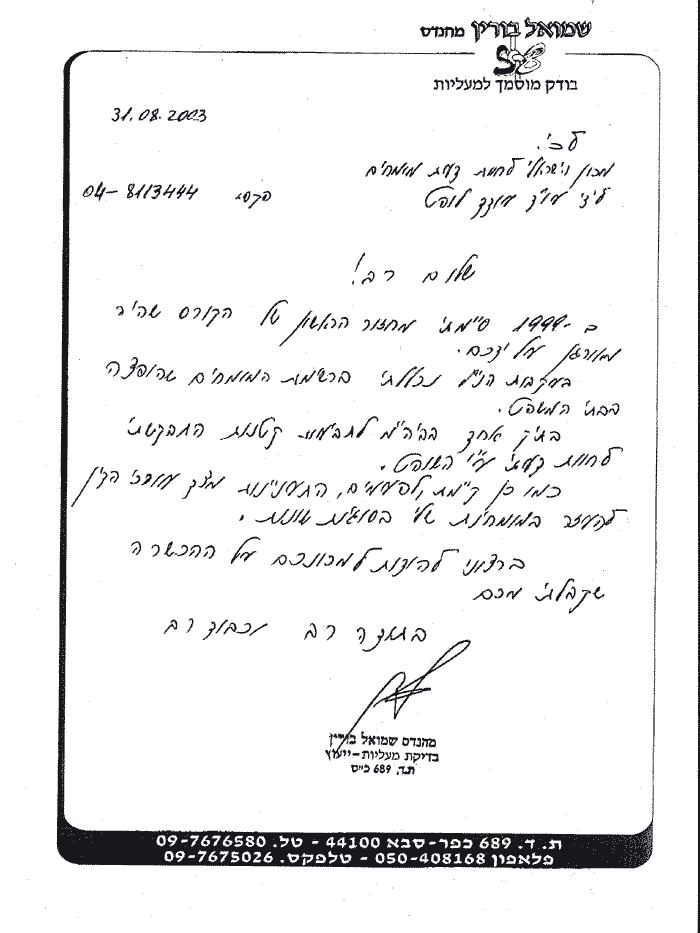 שמואל בורין מהנדס
בודק מוסמך למעליות
31.08.2003
לכב'.
מכון ישראלי לחוות דעת מומחים
לידי עו"ד עודד לופט
פקס. 04-8113444
שלום רב!
ב-1999 סיימתי מחזור הראשון של הקורס שהיה
מאורגן על ידכם.
בעקבות הנ"ל נכללתי ברשימת המומחים שהופצה
בבתי המשפט.
בתיק אחד בביה"מ לתביעות קטנות התבקשתי
לחוות דעתי ע"י השופט.
כמו כן קיימת, לפעמים, התעניינות מצד עורכי הדין
להעזר במומחיות שלי בסוגיות שונות.
ברצוני להודות למכונכם על ההכשרה
שקבלתי מכם
בתודה רבה וכבוד רב
מהנדס שמואל בורין
בדיקת מעליות-ייעוץ
ת.ד. 689 כ"ס
ת. ד. 689 כפר-סבא 44100 - טל. 09-7676580
פלאפון 050-408168 - טלפקס. 09-7675026